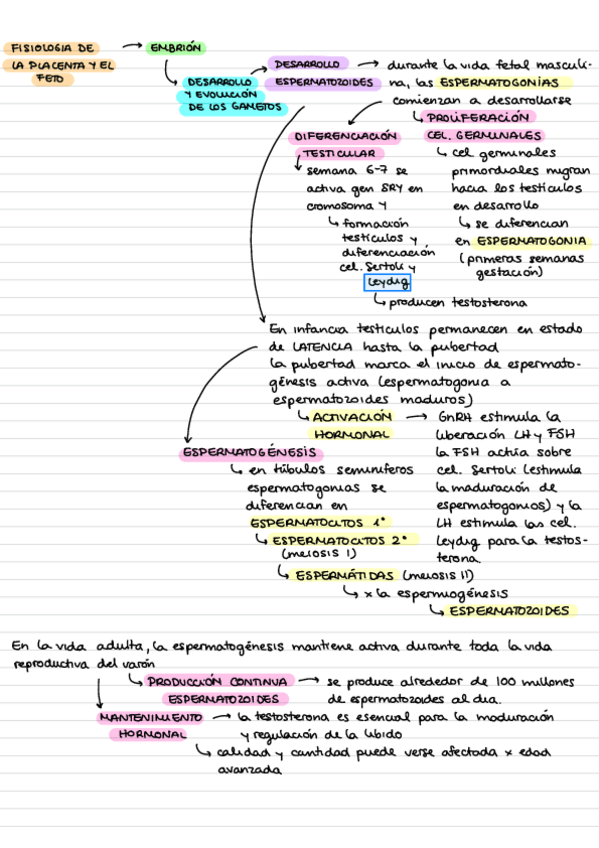 FISIOLOGIA DE
LA PLACENTA Y EL
FETO
→ EMBRIÓN
↳ DESARROLLO
Y EVOLUCIÓN
DE LOS GAMETOS
DESARROLLO
ESPERMATOZOIDES
→ durante la vida fetal masculi-
na, las ESPERMATOGONIAS
comienzan a desarrollarse
↳ PROLIFERACIÓN
CEL. GERMINALES
↳ cel germinales
primordiales migran
hacia los testículos
en desarrollo
↳ se diferencian
en ESPERMATOGONIA
(primeras semanas
gestación)
DIFERENCIACIÓN
TESTICULAR
↳ semana 6-7 se
activa gen SRY en
cromosoma Y
↳ formación
testículos y
diferenciación
cel. Sertoli y
Leydig
↳ producen testosterona
En infancia testículos permanecen en estado
de LATENCIA hasta la pubertad
La pubertad marca el inicio de espermato-
génesis activa (espermatogonia a
espermatozoides maduros)
↳ ACTIVACIÓN
HORMONAL
→ GnRH estimula la
liberación LH y FSH
la FSH actúa sobre
cel. Sertoli (estimula
la maduración de
espermatogonios) y la
LH estimula las cel.
Leydig para la testos-
terona.
ESPERMATOGÉNESIS
↳ en túbulos seminíferos
espermatogonias se
diferencian en
ESPERMATOCITOS 1°
↳ ESPERMATOCITOS 2°
(meiosis I)
↳ ESPERMÁTIDAS (meiosis II)
↳ x la espermiogénesis
↳ ESPERMATOZOIDES
En la vida adulta, la espermatogénesis mantiene activa durante toda la vida
reproductiva del varón
↳ PRODUCCIÓN CONTINUA
ESPERMATOZOIDES
→ se produce alrededor de 100 millones
de espermatozoides al día.
MANTENIMIENTO
HORMONAL
→ la testosterona es esencial para la maduración
y regulación de la libido
↳ calidad y cantidad puede verse afectada x edad
avanzada